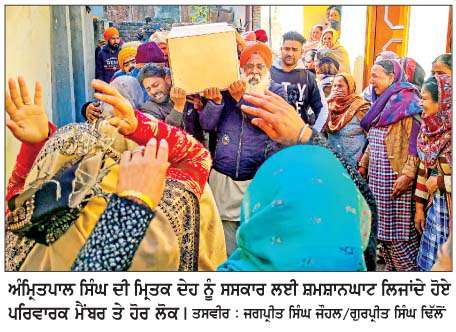 ਅੰਮ੍ਰਿਤਪਾਲ ਸਿੰਘ ਦੀ ਮ੍ਰਿਤਕ ਦੇਹ ਨੂੰ ਸਸਕਾਰ ਲਈ ਸ਼ਮਸ਼ਾਨਘਾਟ ਲਿਜਾਂਦੇ ਹੋਏ
ਪਰਿਵਾਰਕ ਮੈਂਬਰ ਤੇ ਹੋਰ ਲੋਕ। ਤਸਵੀਰ : ਜਗਪ੍ਰੀਤ ਸਿੰਘ ਜੌਹਲ/ਗੁਰਪ੍ਰੀਤ ਸਿੰਘ ਢਿੱਲੋਂ